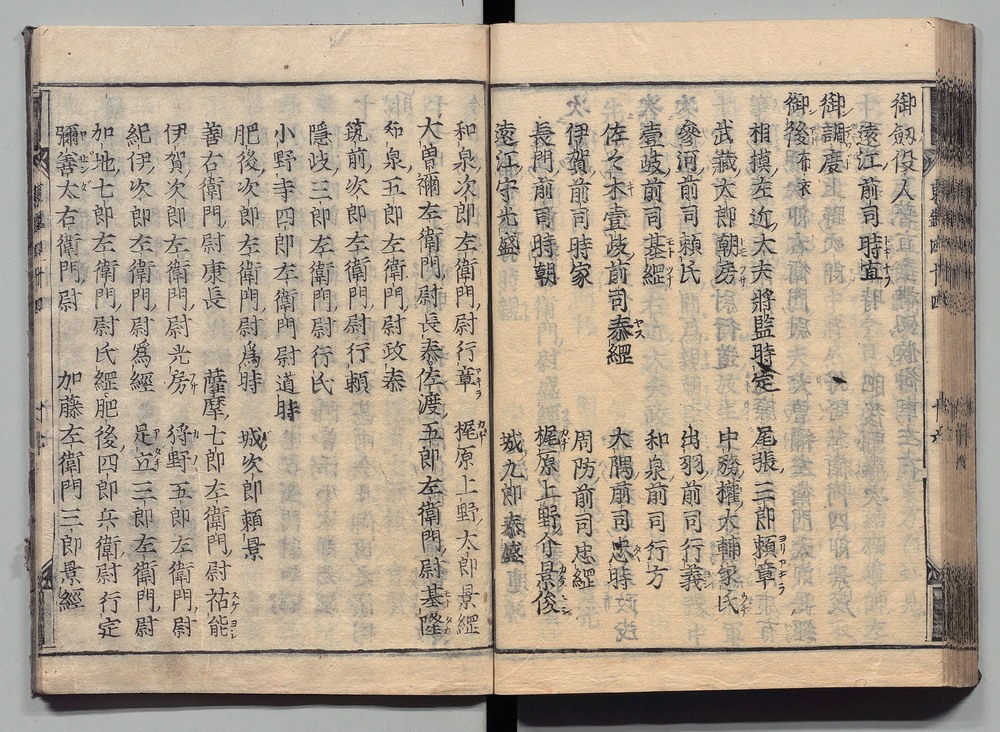 御劔役人
遠江前司時宜
御調度
御後 布衣
相摸左近大夫將監時定 尾張三郎頼章
武藏太郎朝房 中務權大輔家氏
參河前司頼氏 出羽前司行義
壹岐前司基經 和泉前司行方
佐々木壹岐前司泰經 大隅前司忠時
伊賀前司時家 周防前司忠經
長門前司時朝 梶原上野介景俊
遠江守光盛 城九郎泰盛
和泉次郎左衛門尉行章 梶原上野太郎景經
大曽禰左衛門尉長泰 佐渡五郎左衛門尉基隆
和泉五郎左衛門尉政泰
筑前次郎左衛門尉行頼
隱岐三郎左衛門尉行氏
小野寺四郎左衛門尉道時
肥後次郎左衛門尉爲時 城次郎頼景
善右衛門尉康長 薩摩七郎左衛門尉祐能
伊賀次郎左衛門尉光房 狩野五郎左衛門尉
紀伊次郎左衛門尉爲經 足立三郎左衛門尉
加地七郎左衛門尉氏經 肥後四郎兵衛尉行定
彌善太右衛門尉 加藤左衛門三郎景經
東鑑四十四